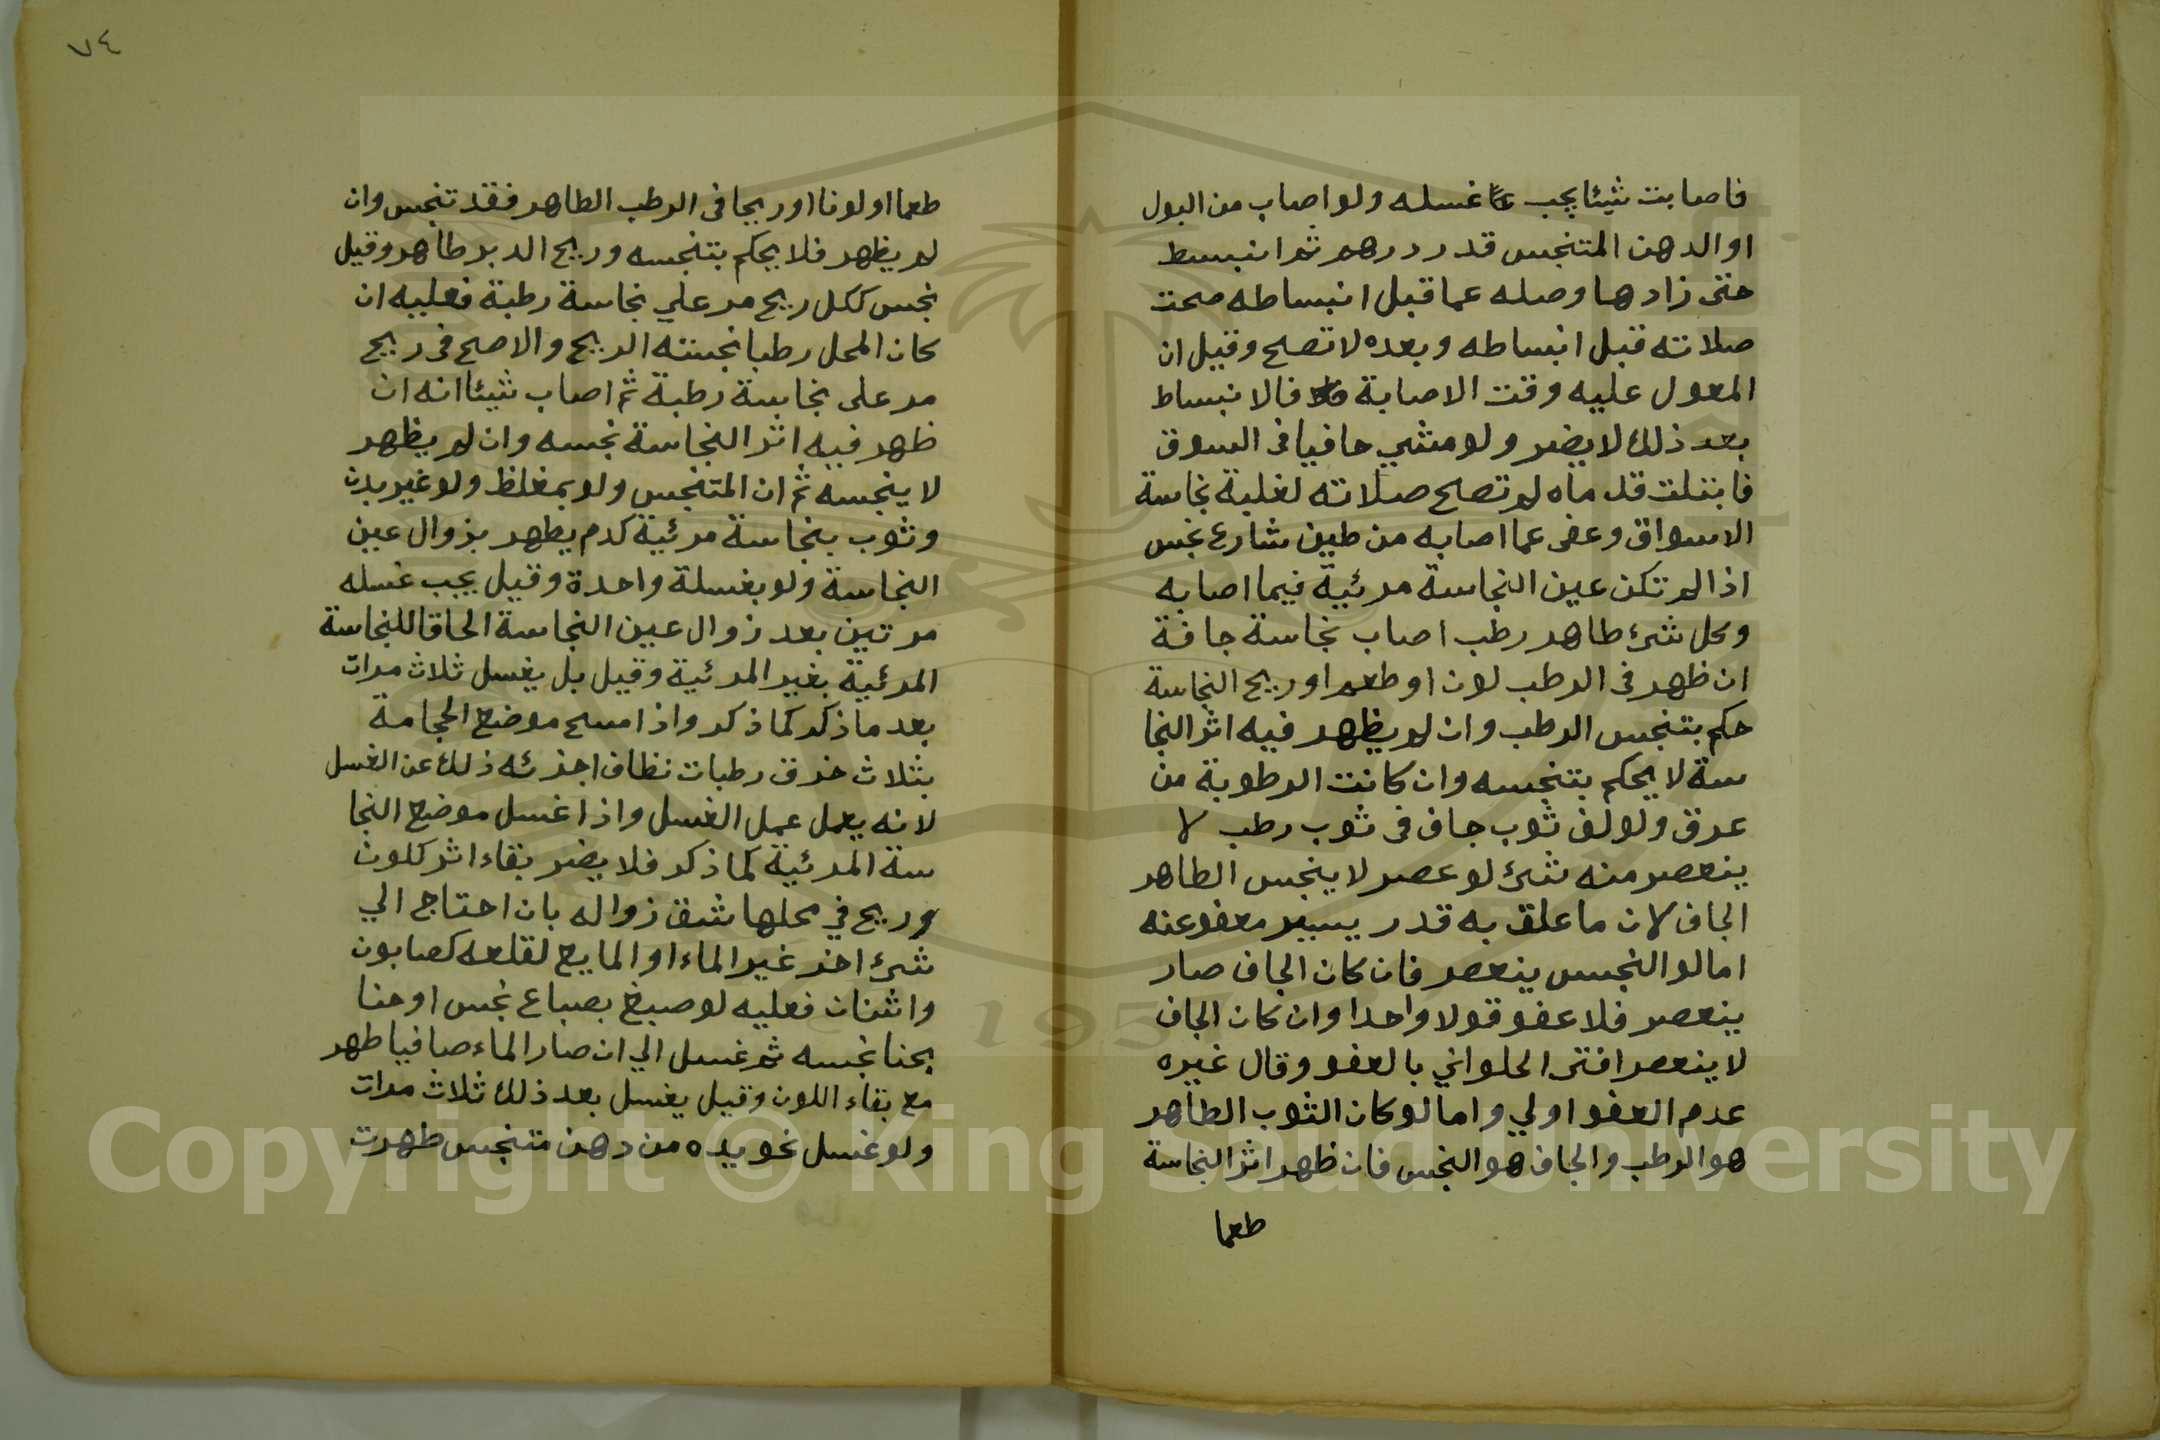 فاصابت شيئا يجب غسله ولو اصاب من البول
او الدهن المتنجس قدر درهم ثم انبسط
حتى زاد ها وصله عما قبل انبساطه صحت
صلاته قبل انبساطه وبعده لا تصح وقيل ان
المعول عليه وقت الاصابة فالانبساط
بعد ذلك لا يضر ولو مشي حافيا فى السوق
فابتلت قدماه لم تصح صلاته لغلبة نجاسة
الاسواق وعفى عما اصابه من طين شارع نجس
اذا لم تكن عين النجاسة مرئية فيما اصابه
وكل شئ طاهر رطب اصاب نجاسة جافة
ان ظهر فى الرطب لون او طعم او ريح النجاسة
حكم بتنجس الرطب وان لم يظهر فيه اثر النجا
سة لا يحكم بتنجسه وان كانت الرطوبة من
عرق ولو لف ثوب جاف فى ثوب رطب لا
ينعصر منه شئ لو عصر لا ينجس الطاهر
الجاف لان ما علق به قدر يسير معفو عنه
اما لو النجس ينعصر فان كان الجاف صار
ينعصر فلا عفو قولا واحدا وان كان الجاف
لا ينعصر افتى الحلواني بالعفو وقال غيره
عدم العفو اولي واما لو كان الثوب الطاهر
هو الرطب والجاف هو النجس فان ظهر اثر النجاسة
طعما
٧٤
طعما او لونا او ريحا فى الرطب الطاهر فقد تنجس وان
لم يظهر فلا يحكم بتنجسه وريح الدبر طاهر وقيل
نجس ككل ريح مر علي نجاسة رطبة فعليه ان
كان المحل رطبا نجسته الريح والاصح فى ريح
مر على نجاسة رطبة ثم اصاب شيئا انه ان
ظهر فيه اثر النجاسة نجسه وان لم يظهر
لا ينجسه ثم ان المتنجس ولو بمغلظ ولو غير بدن
وثوب بنجاسة مرئية كدم يطهر بزوال عين
النجاسة ولو بغسلة واحدة وقيل يجب غسله
مرتين بعد زوال عين النجاسة الحاقا للنجاسة
المرئية بغير المرئية وقيل بل يغسل ثلاث مرات
بعد ما ذكر كما ذكر واذا مسح موضع الحجامة
بثلاث خرق رطبات نظاف اجزئه ذلك عن الغسل
لانه يعمل عمل الغسل واذا غسل موضع النجا
سة المرئية كما ذكر فلا يضر بقاء اثر كلون
وريح في محلها شق زواله بان احتاج الي
شئ اخر غير الماء او المايع لقلعه كصابون
واشنان فعليه لو صبغ بصباع نجس او حنا
بحنا نجسه ثم غسل الي ان صار الماء صافيا طهر
مع بقاء اللون وقيل يغسل بعد ذلك ثلاث مرات
ولو غسل نحو يده من دهن متنجس طهرت
1957
Copyright © King Saud University